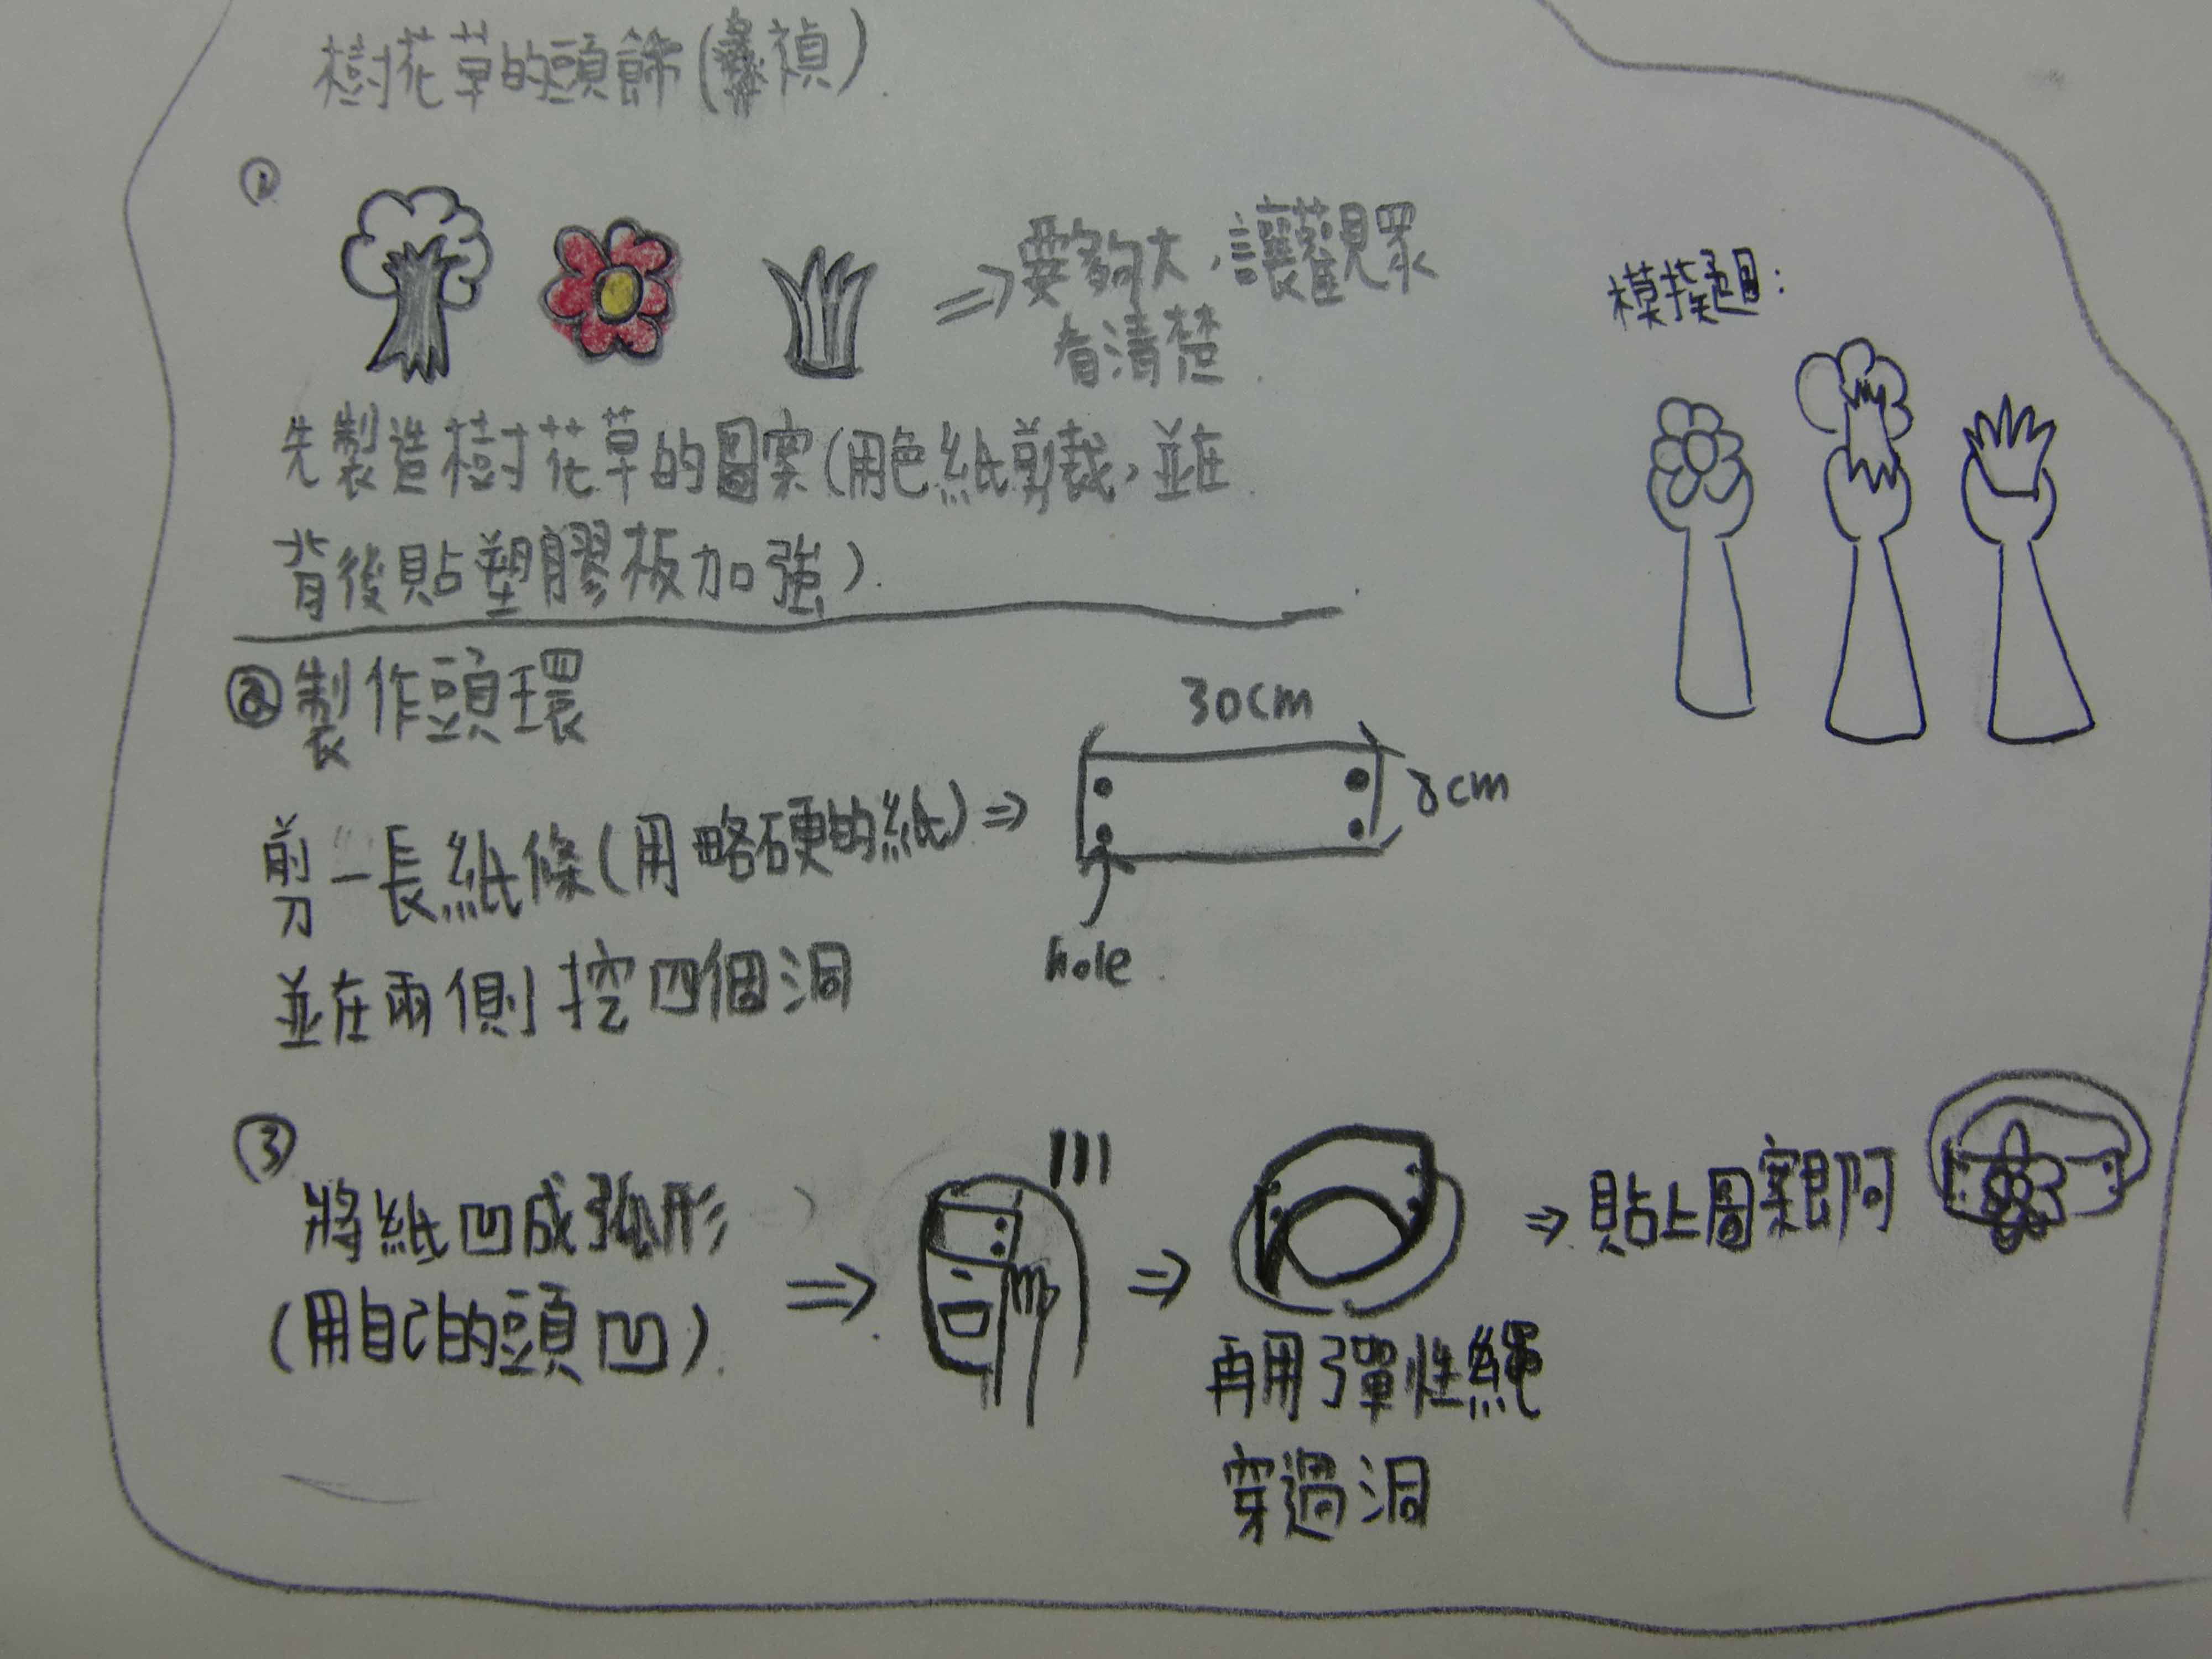 樹花草的頭飾(彝禎)
①
⇒要夠大,讓觀眾
看清楚
模擬圖:
先製造樹花草的圖案(用色紙剪裁,並在
背後貼塑膠板加強)
②製作頭環
30cm
8cm
剪一長紙條(用略硬的紙)⇒
hole
並在兩側挖四個洞
③
將紙凹成弧形
(用自己的頭凹)
⇒
⇒
⇒貼上圖案即可
再用彈性繩
穿過洞